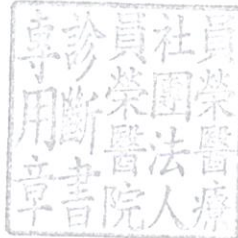 員榮醫療
社團法人
員榮醫院
診斷書
專用章